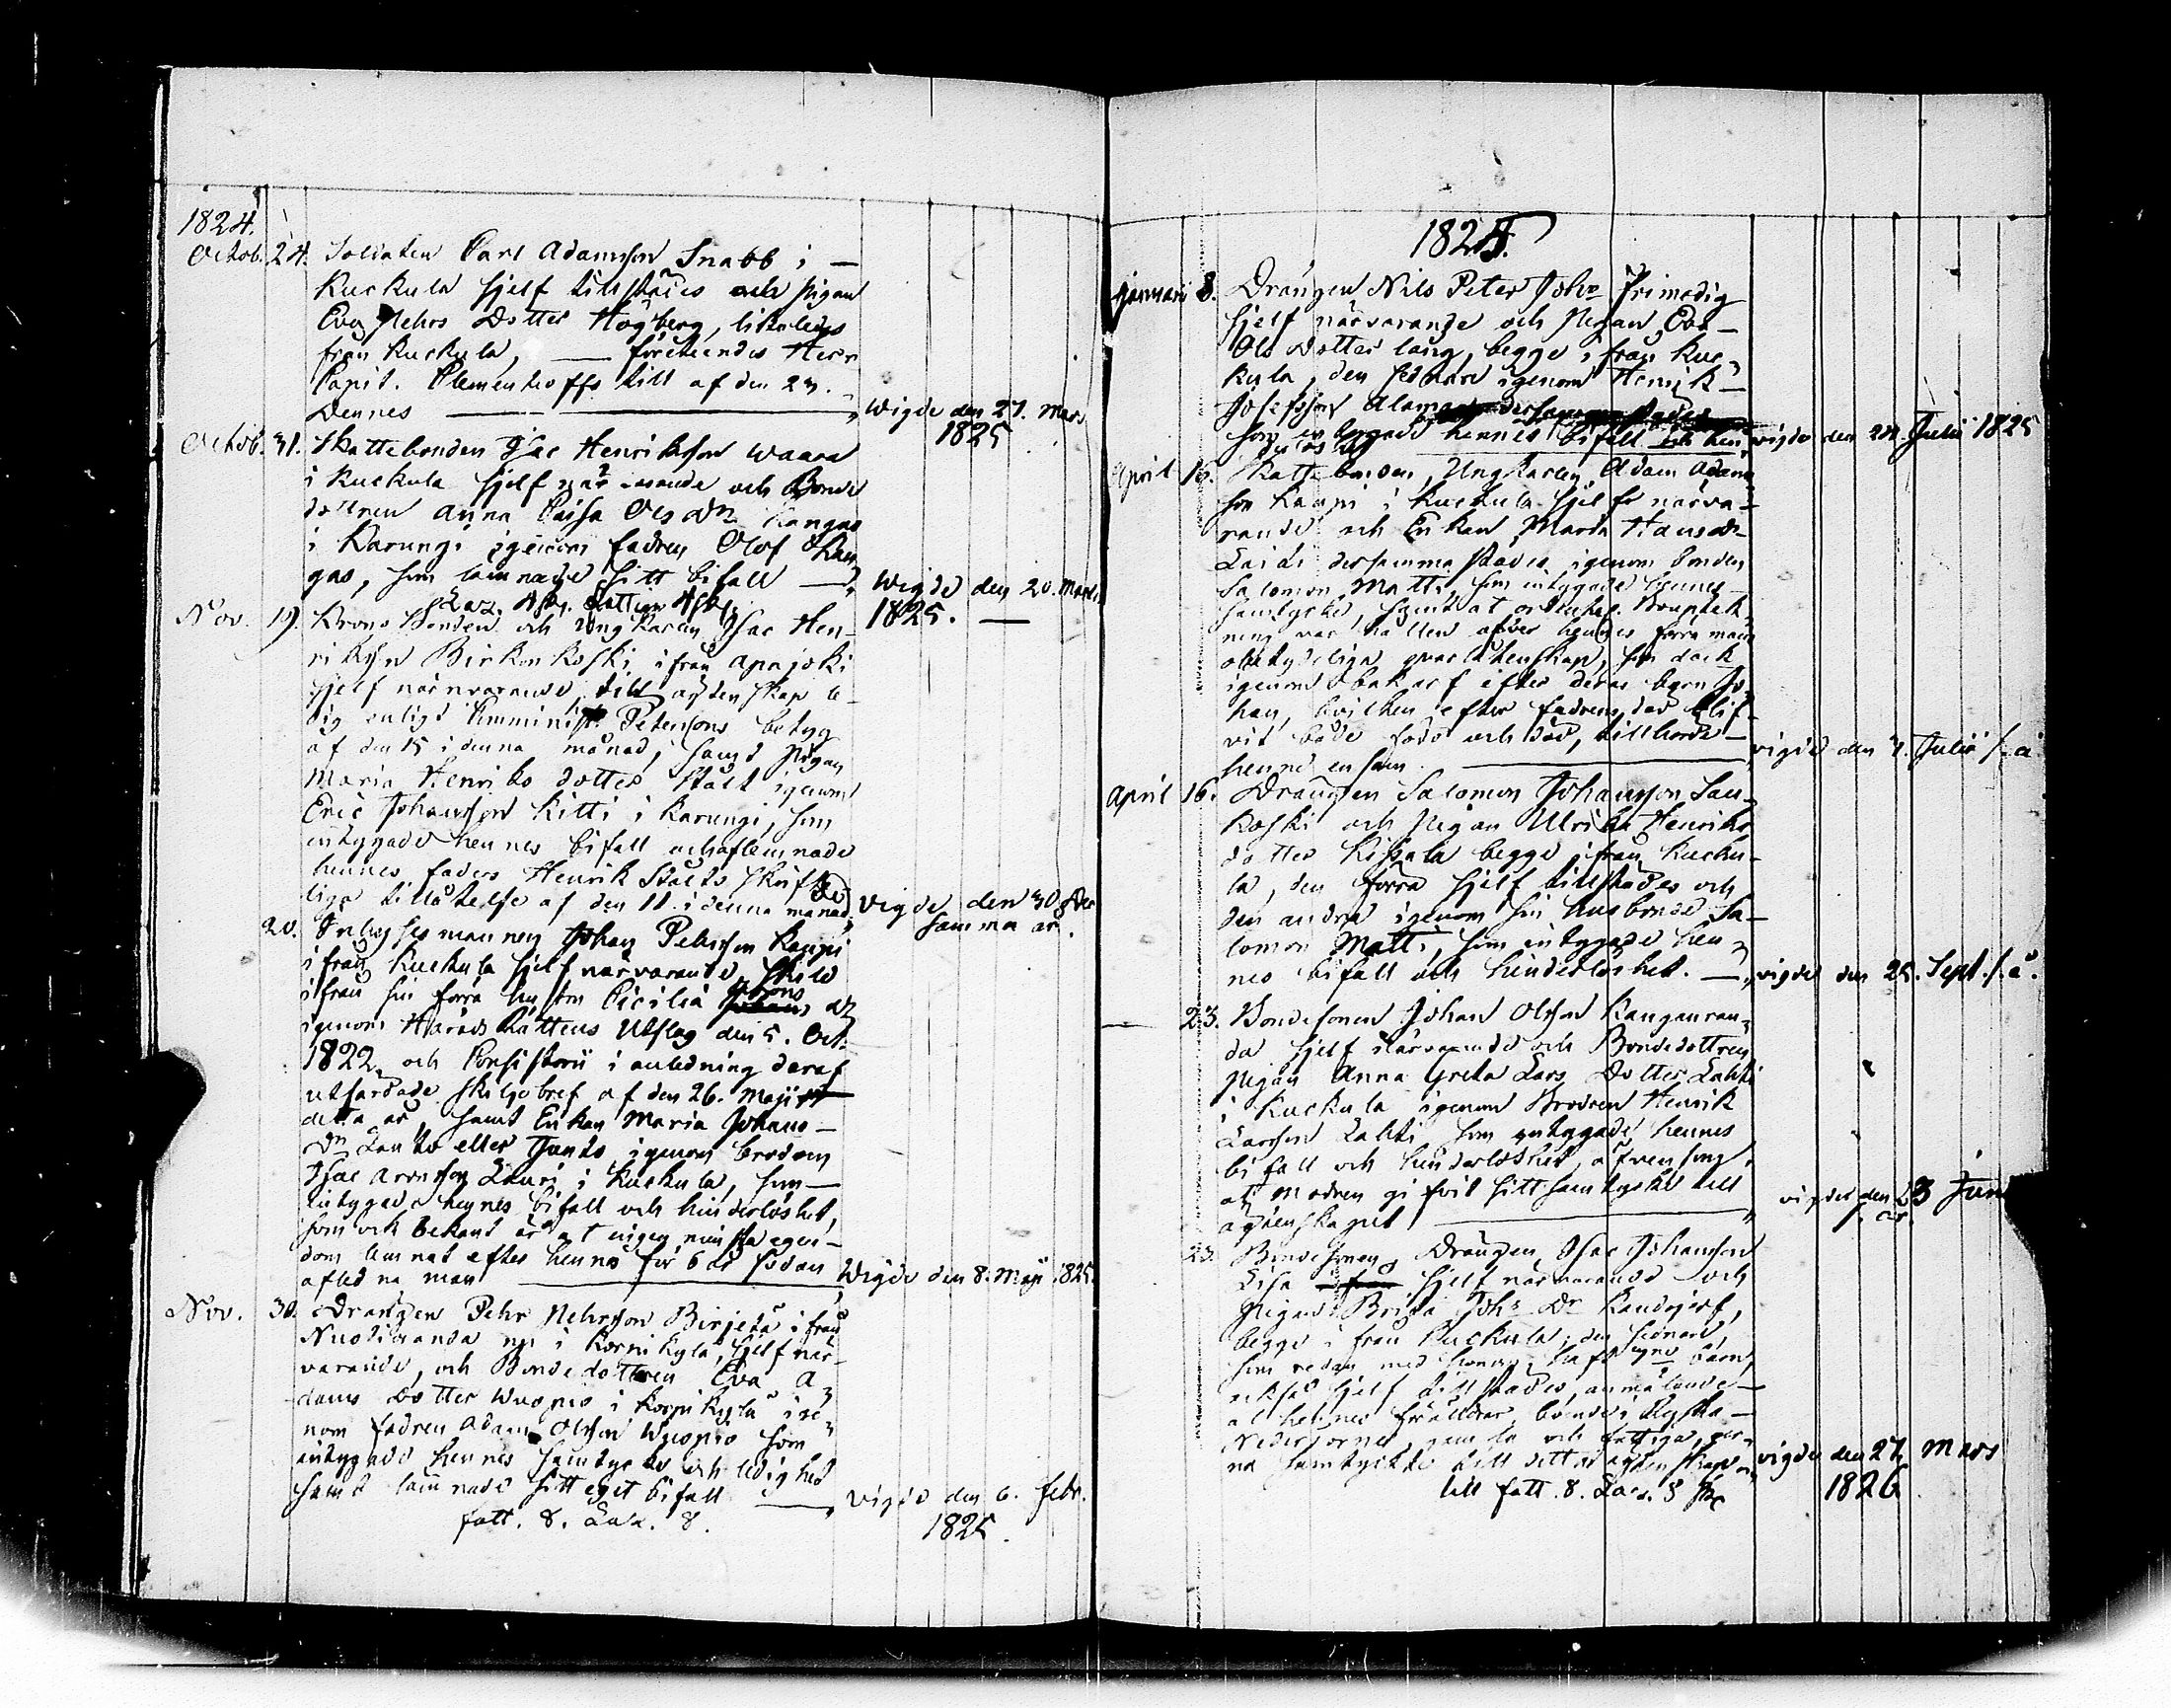 1824.
Octob. 24. Soldaten Carl Adamsson Snabb i —
Kuckula sjelf tillstädes och pigan
Eva Pehrs Dotter Högberg, likaledes
från Kuckula, — företeendes Herr
Capit. Clementeoffs till af den 23.
Dennes — Wigde den 27. Mars
1825
Octob. 31. Skattebonden Isac Henriksson Waara
i Kuckula sjelf närvarande och Bonde
dottren Anna Caisa Ols dr Kangas
i Karungi igenom fadren Olof Kan-
gas, som lämnade sitt bifall — Wigde den 20. Mars
1825. —
Nov. 19. Krono Bonden och ungkarlen Isac Hen-
riksson Birkonkoski ifrån Apajoki
sjelf närvarande, till ägtenskap le-
dig enligt Petersons betyg
af den 15 i denna månad, samt Pigan
Maria Henriks dotter Stålt igenom
Eric Johansson Kitti i Karungi, som
intygade hennes bifall och aflemnade
hennes faders Henrik Stålts skrift-
liga tillåtelse af den 11. i denna månad. Vigde den 30
samma år.
20. Inhysesmannen Johan Pehrsson Kauppi
ifrån Kuckula sjelf närvarande, skild
ifrån sin förra hustru Cicilia dr
igenom Härads Rättens Utslag den 5. Oct.
1822, och Consistorii i anledning deraf
utfärdade skiljobref af den 26. Maji
detta år, samt Enkan Maria Johans —
Dr Lanto eller Junto igenom brodren
Isac Aronsson Lauri i Kuckula, som —
intygade hennes bifall och hinderlöshet,
som ock bekant är at ingen minsta egen-
dom lemnat efter hennes för 6 år sedan
aflidna man — Wigde den 8. Maji 1825.
Nov. 30. Drängen Pehr Pehrsson Birjetä ifrån
Nuotioranda nu i Korpikylä, sjelf när-
varande, och Bondedottren Eva A-
dams Dotter Wuopio i Korpikylä ige-
nom fadren Adam Olsson Wuopio som
intygade hennes samtycke och ledighet
samt lämnade sitt eget bifall — Vigde den 6. Febr.
fatt. 8. Laz. 8. 1825.
1825.
Januari 8. Drängen Nils Peter Johs Frimodig
sjelf närvarande och Pigan Eva —
Ols Dotter Lång, begge ifrån Kuc-
kula, den sednare igenom Henrik —
Josefsson Alama
som intygade hennes bifall och hin- vigde den 24. Julii 1825
derlöshet
April 16. Skattebonden, Ungkarlen Adam Adams
son Kauppi i Kuckula sjelf närva-
rande och Enkan Maria Hans dr
Laiti dersammastädes igenom bonden
Salomon Matti, som intygade hennes
samtycke, samt at ordentlig Bouptek-
ning var hållen öfver hennes förra mans
obetydeliga qvarlåtenskap, som dock
igenom bakarf efter deras barn Jo-
han, hvilken efter fadrens död blif-
vit både född och död, tillhörde —
henne ensam. — vigde den 3. Julii s. å.
April 16. Drängen Salomon Johansson Lau-
koski och Pigan Ulrika Henriks
dotter Kissala begge ifrån Kucku-
la, den förra sjelf tillstädes och
den andra igenom sin husbonde Sa-
lomon Matti, som intygade hen-
nes bifall och hinderlöshet. — vigde den 25. Sept. s. å.
— 23. Bondesonen Johan Olsson Kanganran-
da sjelf närvarande och Bondedottren
Pigan Anna Greta Lars Dotter Lahti
i Kuckula igenom Brodren Henrik
Larsson Lahti som intygade hennes
bifall och hinderlöshet, äfvensom
at modren gifvit sitt samtycke till
ägtenskapet — vigde den 23 Juni
s. år.
23. Bondesonen, Drängen Isac Johansson
Lisa sjelf närvarande och
Pigan Brita Johs Dr Randsjerf,
begge ifrån Kuckula, den sednare,
som redan med honom haft barn,
också sjelf tillstädes, anmälande —
at hennes föräldrar, boende i Ryska —
Nedertorneå, gamla och fattiga, ger-
na samtyckte till detta ägtenskap — vigde den 27. Mars
till fatt. 8. Laz. 8 1826.